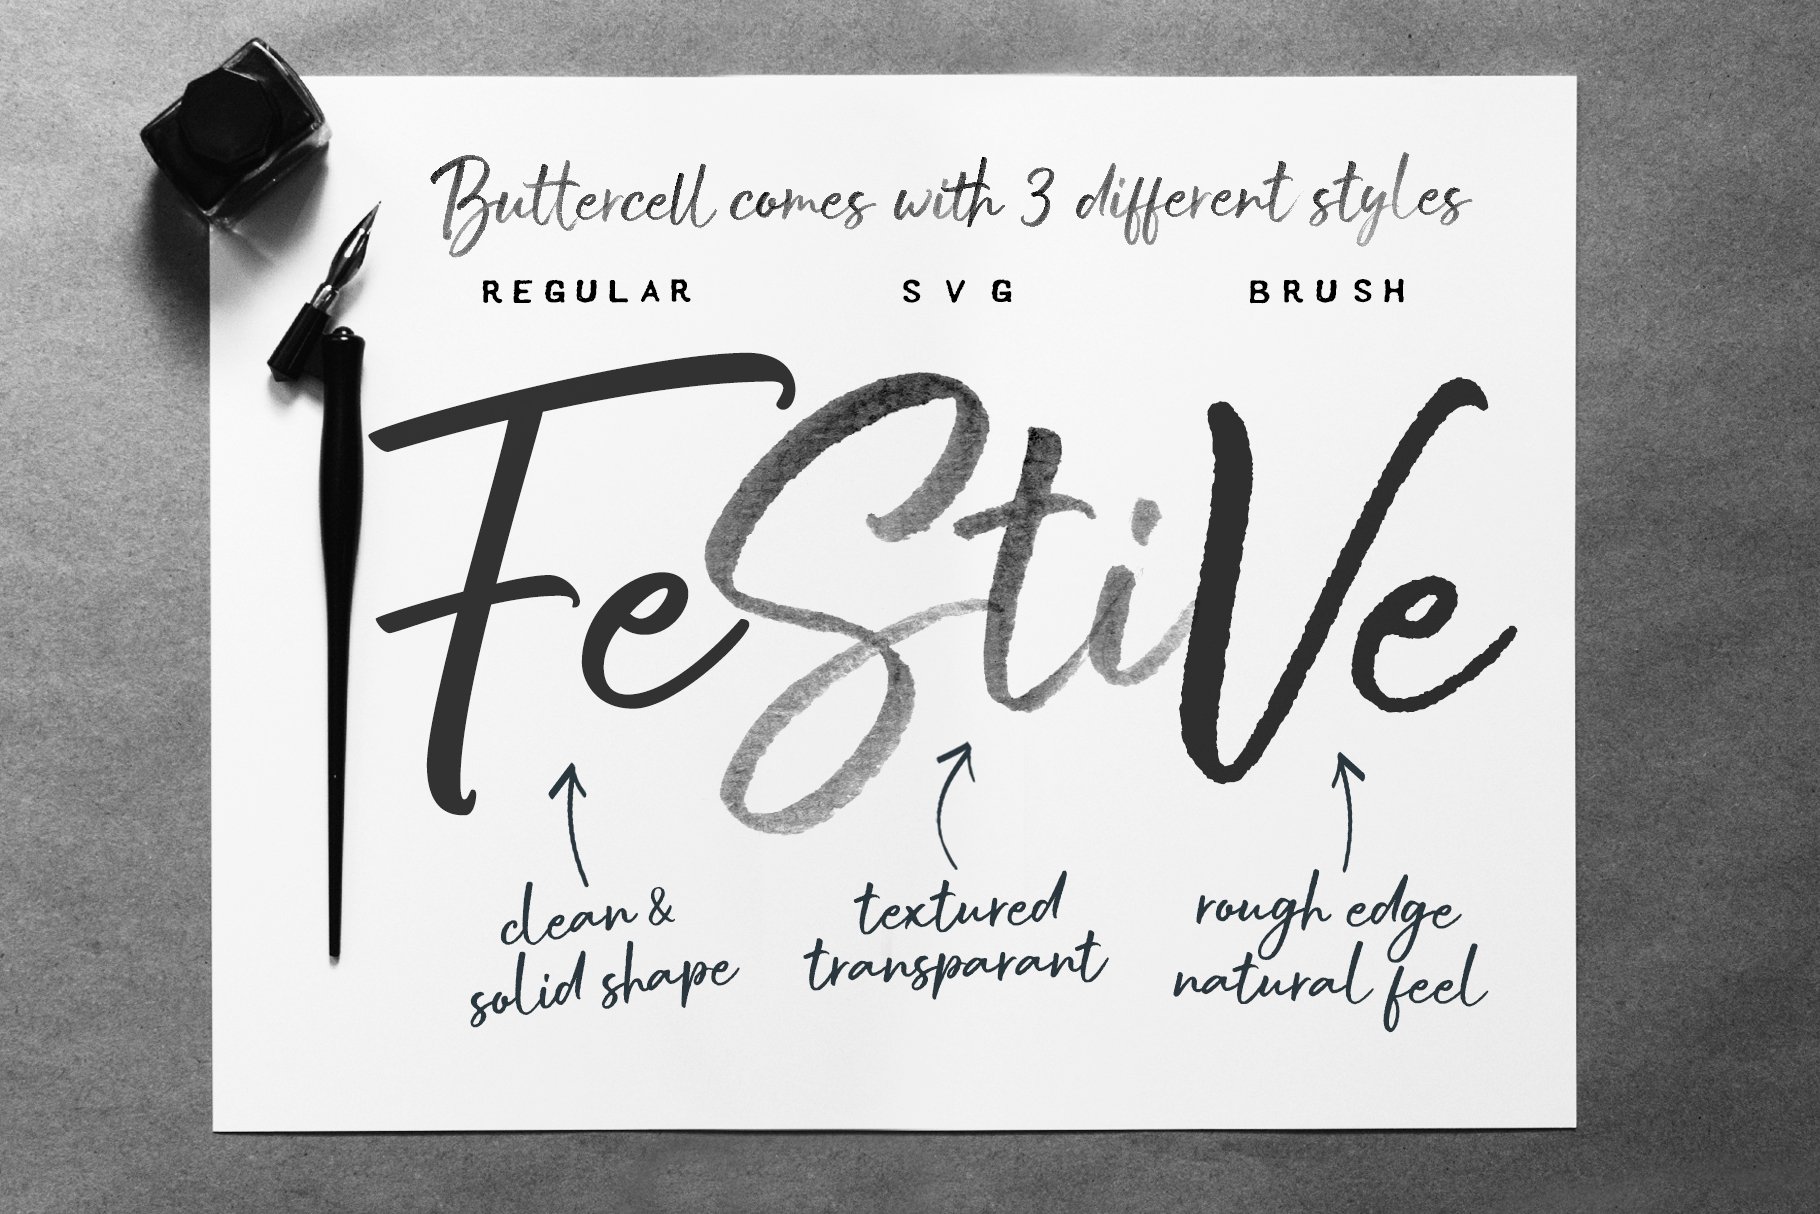 Buttercell comes with 3 different styles
REGULAR SVG BRUSH
FeStiVe
clean &
solid shape
textured
transparant
rough edge
natural feel